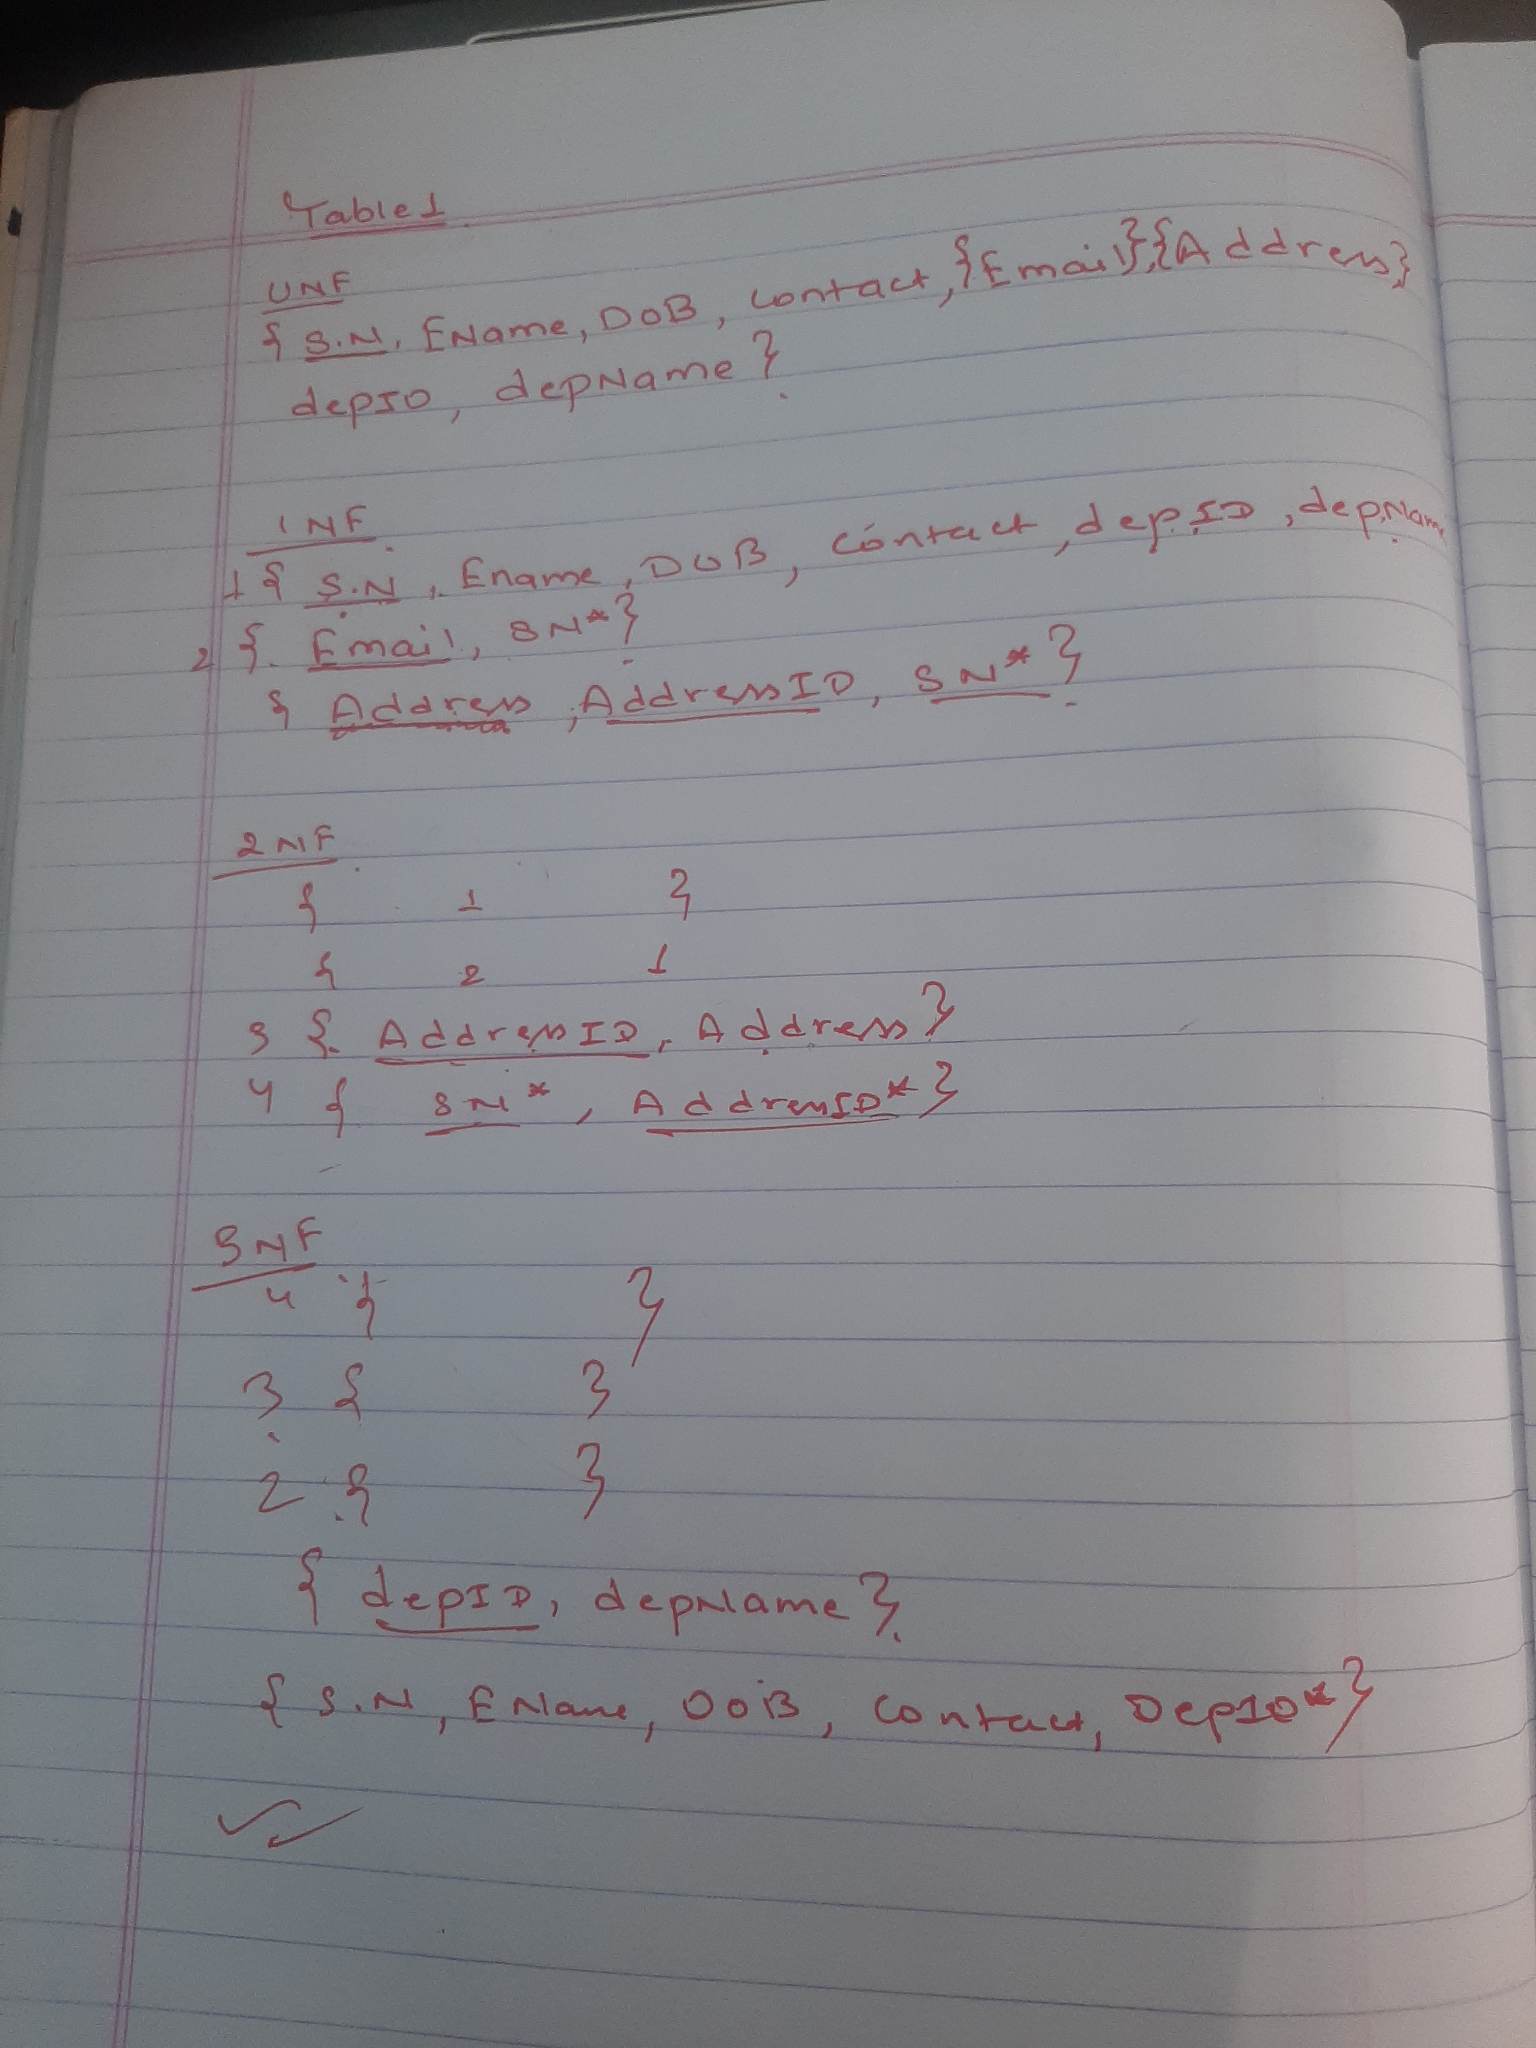 Table 1
UNF
{ S.N, EName, DOB, contact, {Email}, {Address}
depID, depName }.
1NF
1 { S.N, Ename, DOB, contact, depID, depName
2 { Email, SN* }
{ Address, AddressID, SN* }
2NF
{ 1 }
{ 2 }
3 { AddressID, Address }
4 { SN*, AddressID* }
3NF
4 { }
3 { }
2 { }
{ depID, depName }.
{ S.N, EName, DOB, Contact, DepID* }